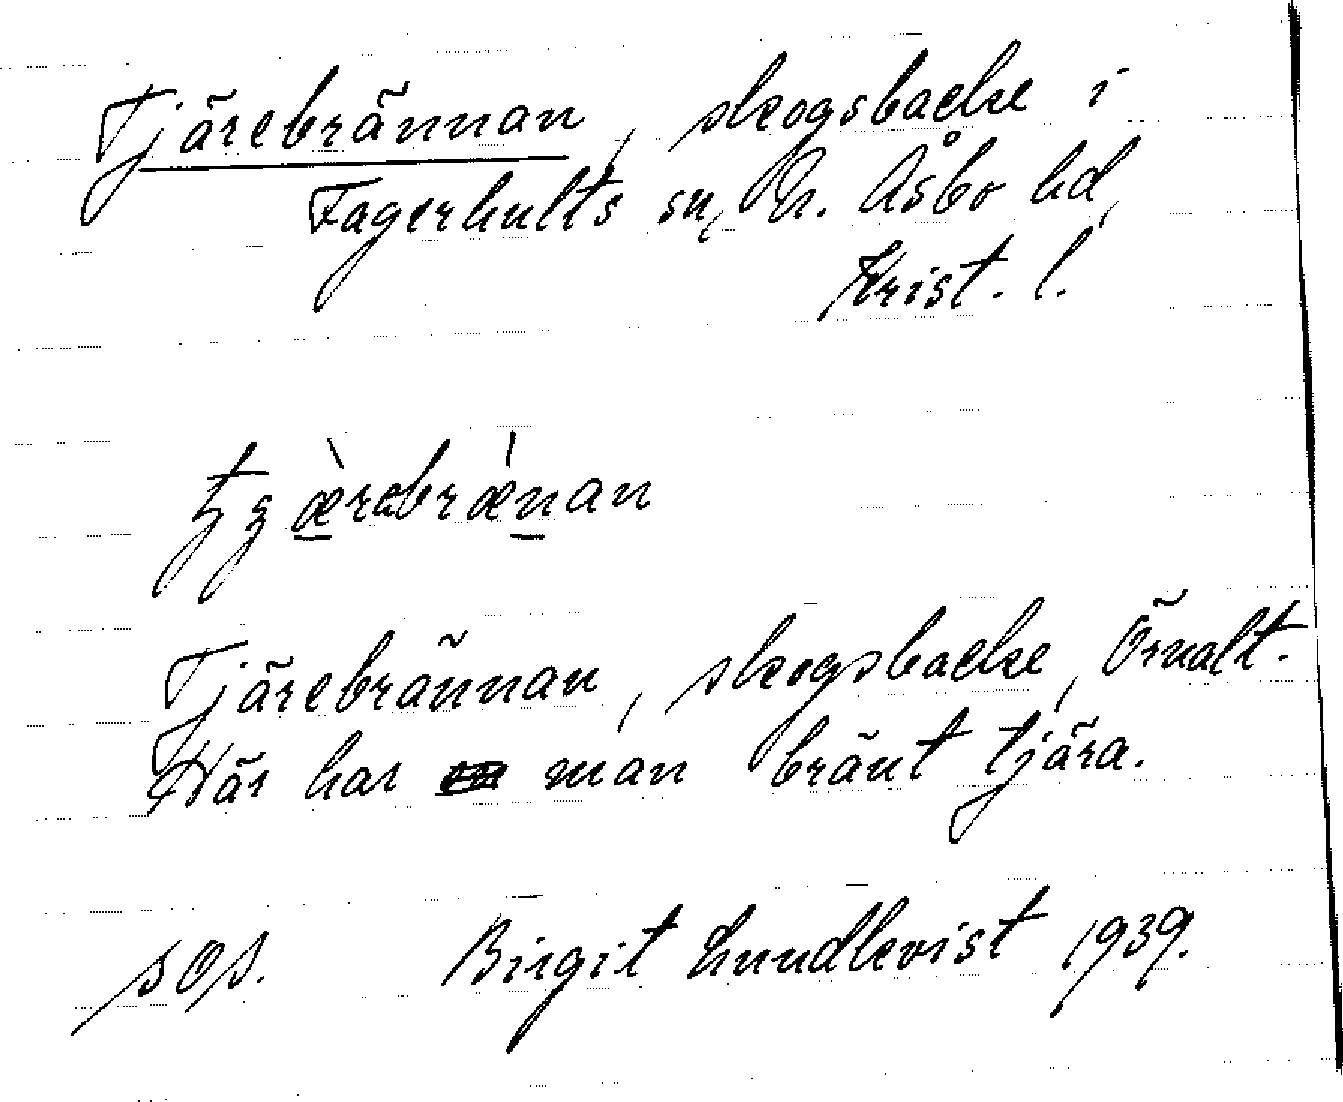 Tjärebrännan, skogsbacke i
Fagerhults sn, N. Åsbo hd,
Krist. l.
Tjärebrännan, skogsbacke, Örnalt.
Här har man bränt tjära.
sOs. Birgit Lundkvist 1939.